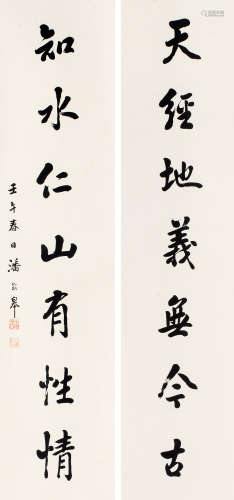 天經地義無今古
知水仁山有性情
壬午春日潘公皋